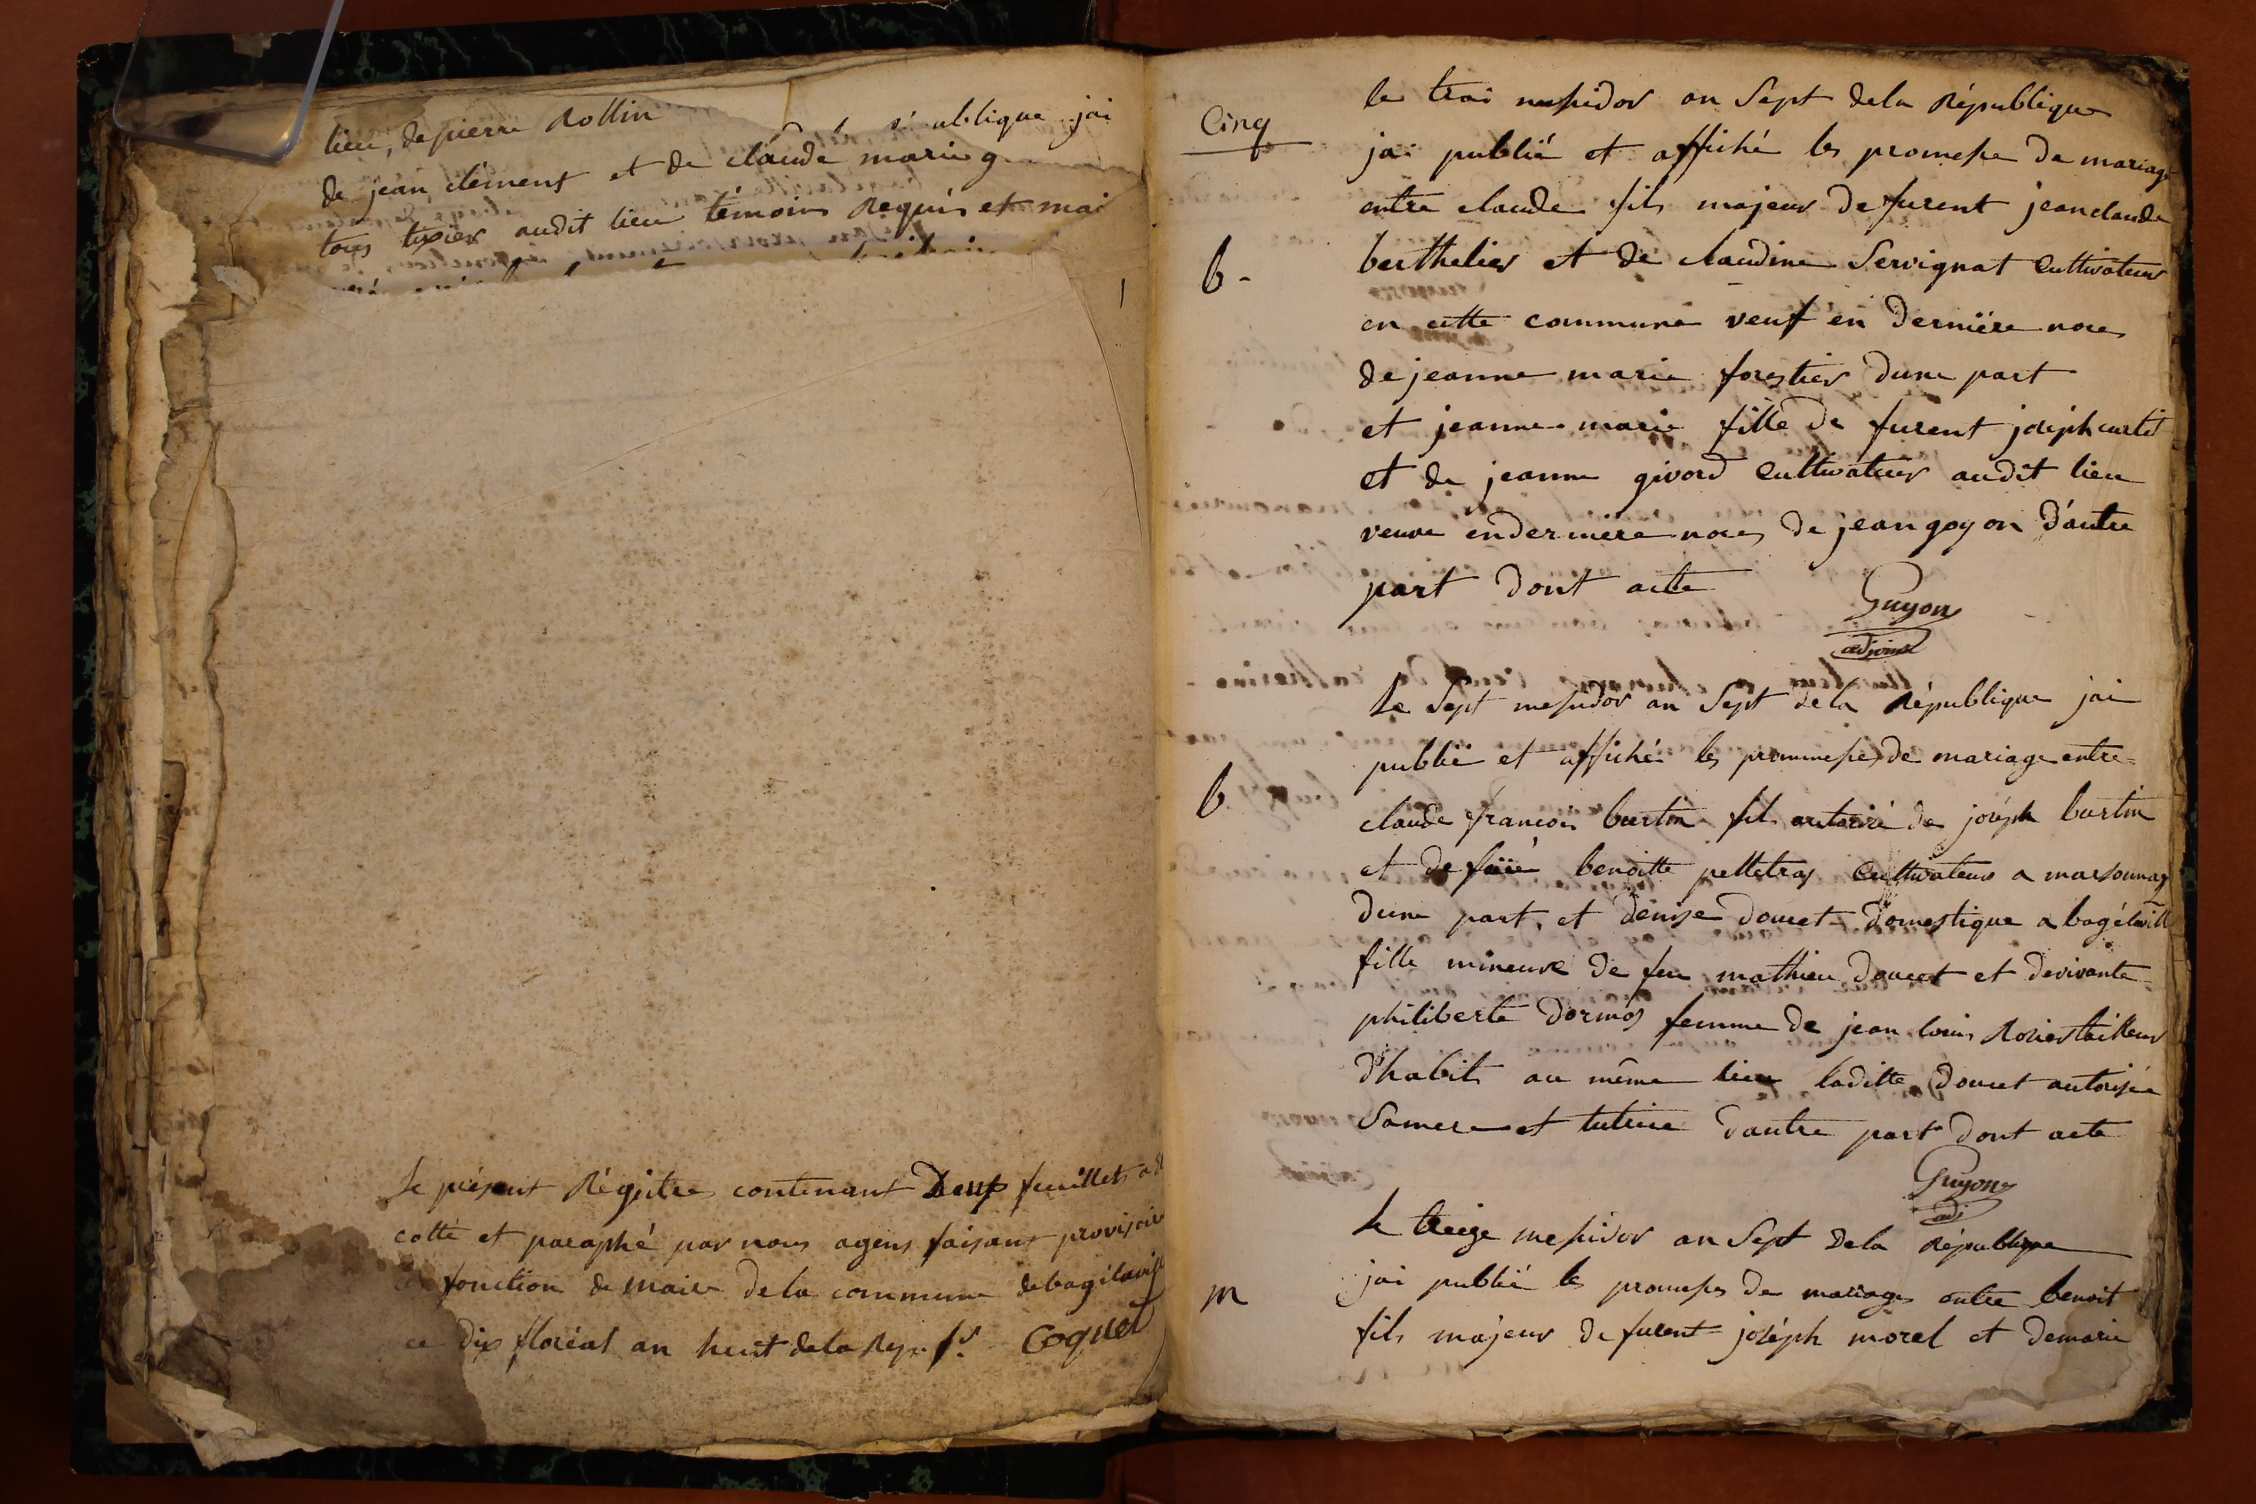 lieu, de pierre Rollin
ublique jai
de jean clément et de claude marie g
tous tixier audit lieu témoins Requis et moi
Le présent Régistre contenant Deux feuillets a été
cotté et paraphé par nous agens faisant provisoir
fonction de maire de la commune de bagélaville
ce dix floréal an huit de la Rep. fr. Coquet
Cinq
le troi messidor an Sept dela République
jai publié et affiché les promesse de mariage
entre claude fils majeur de furent jeanclaude
b -
berthelier et de claudine Servignat Cultivateurs
en cette commune veuf en derniére noces
de jeanne marie forestier dune part
et jeanne marie fille de furent joséph curtit
et de jeanne givord Cultivateurs audit lieu
veuve en derniére noces de jean goyon d'autre
part dont acte
Guyon
adjoint
Le Sept messidor an Sept de la République jai
publié et affiché les prommesses de mariage entre
b
claude françois burtin fils autorisé de joséph burtin
et de feüe benoitte pelletras Cultivateurs a marsonnay
dune part, et denise doucet domestique a bagélaville
fille mineure de feu mathieu doucet et devivante
philiberte dormos femme de jean louis Rosier tailleur
d'habits au même lieu laditte doucet autorisée
Samere et tutrice dautre part dont acte
Guyon
adj
Le treize messidor an Sept dela République
m
jai publié les promesses de mariages entre benoit
fils majeur de furent joséph morel et demarie